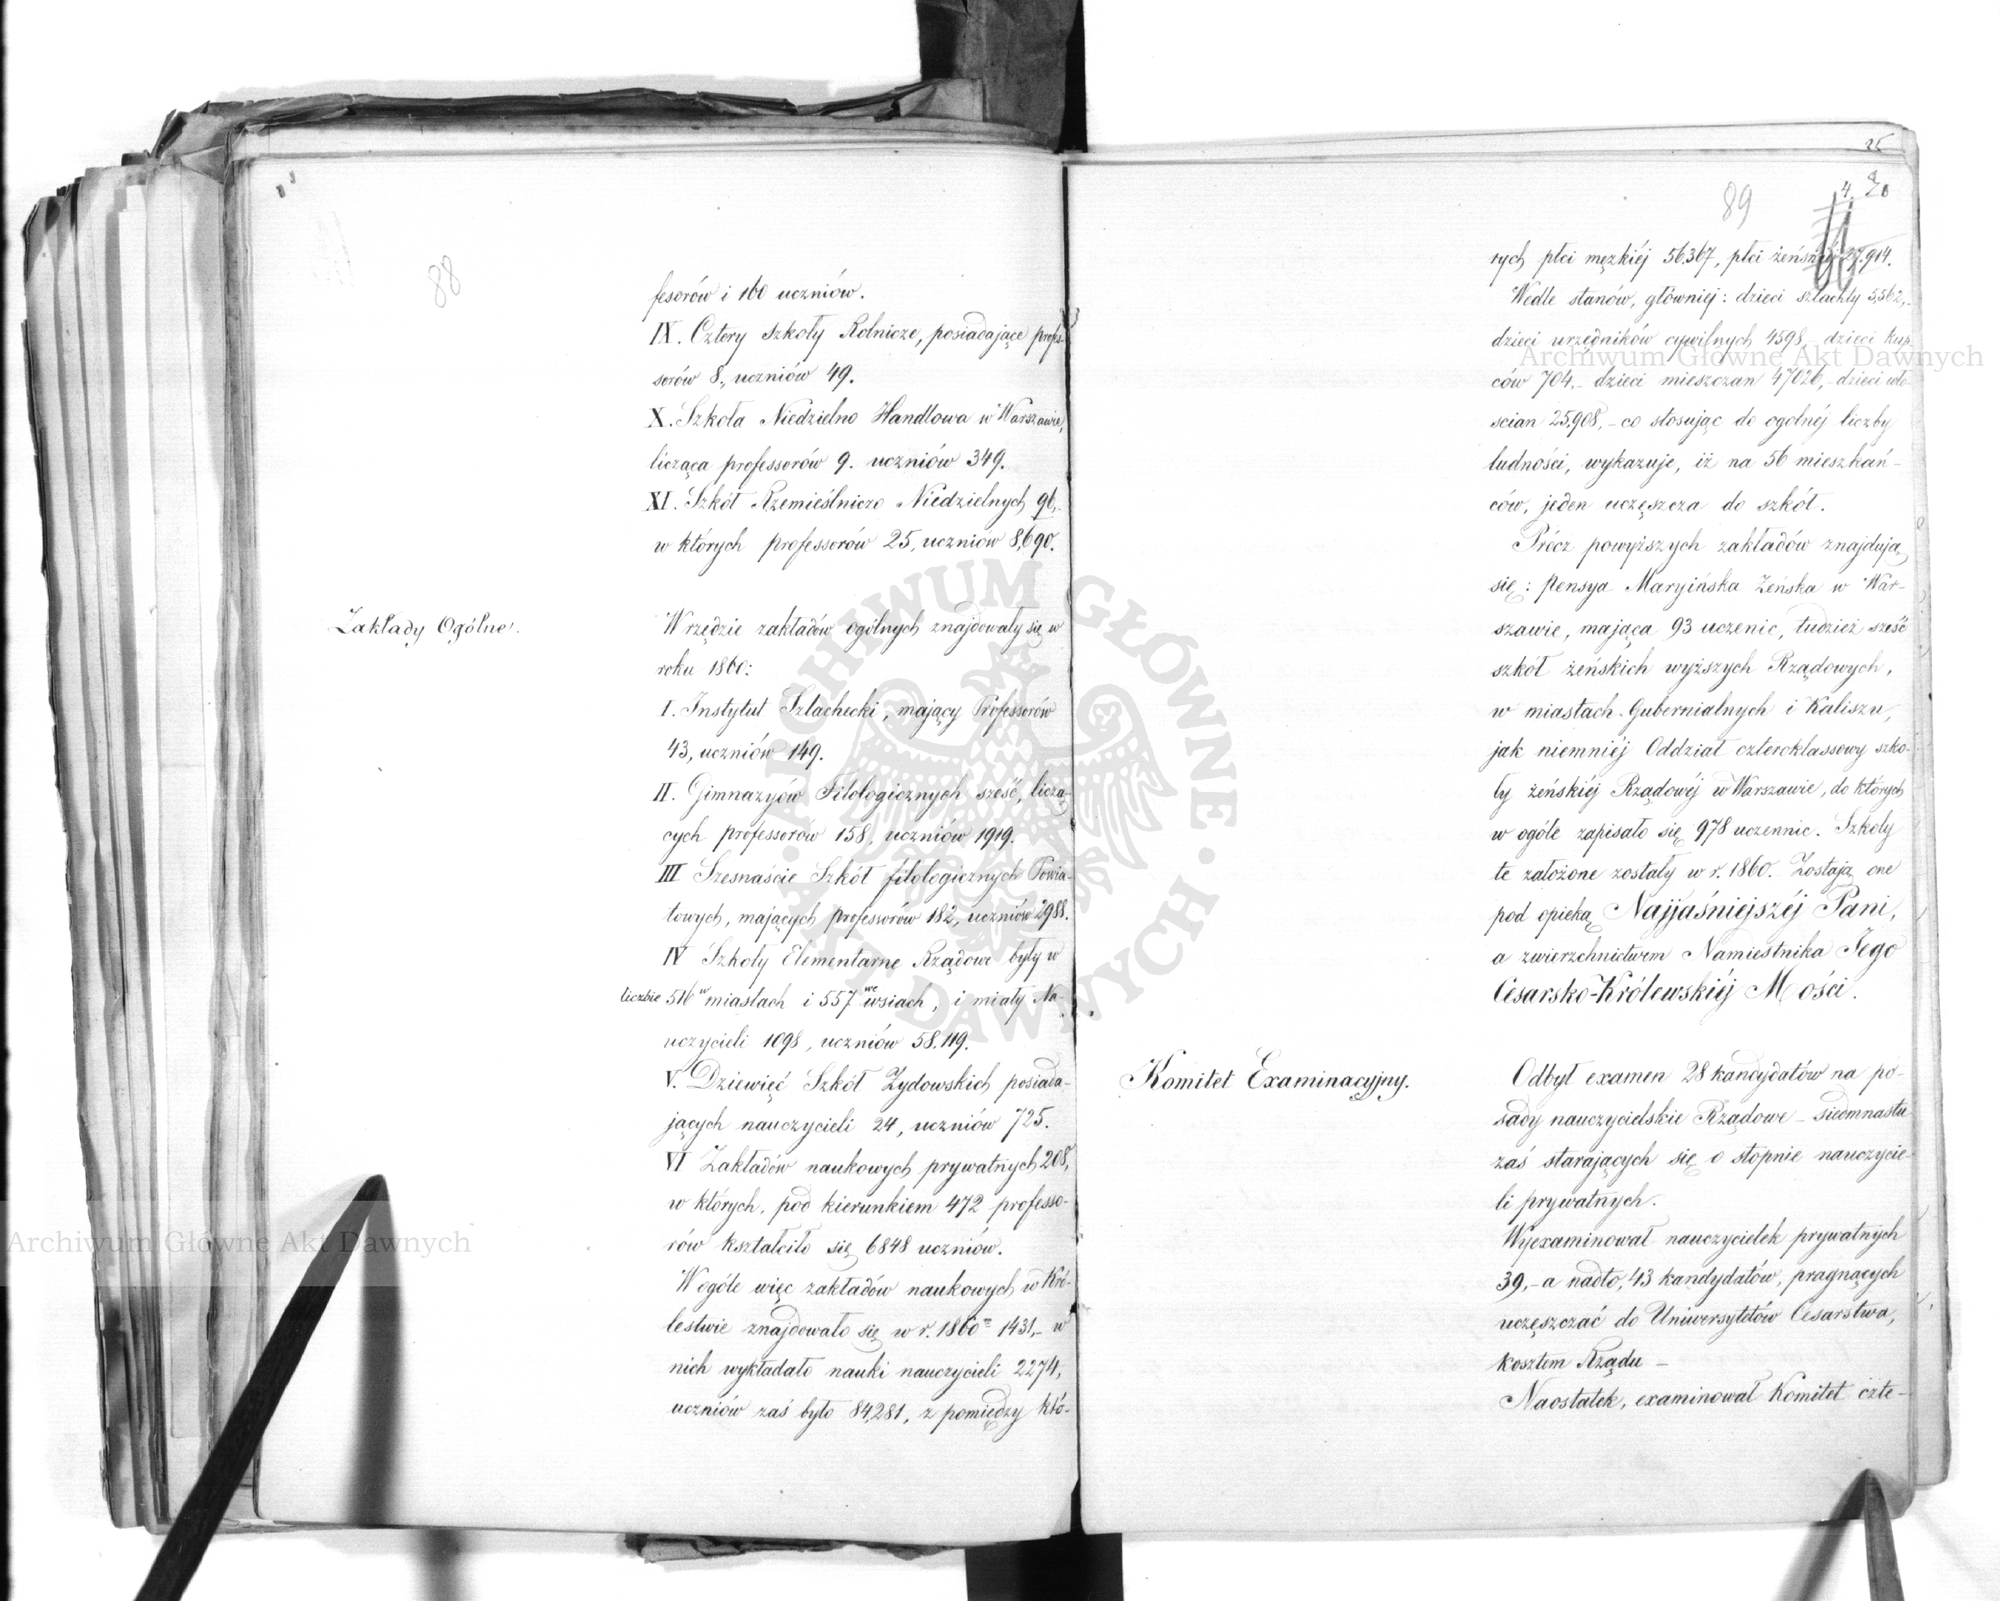 88
fesorów i 160 uczniów.
IX. Cztery Szkoły Rolnicze, posiadające profes-
sorów 8, uczniów 49.
X. Szkoła Niedzielno Handlowa w Warszawie,
licząca professorów 9. uczniów 349.
XI. Szkół Rzemieślniczo Niedzielnych 96,-
w których professorów 25, uczniów 8,690.
Zakłady Ogólne.
W rzędzie zakładów ogólnych znajdowały się w
roku 1860:
I. Instytut Szlachecki, mający Professorów
43, uczniów 149.
II. Gimnazyów Filologicznych sześć, liczą-
cych professorów 158, uczniów 1919.
III Szesnaście Szkół filologicznych Powia-
towych, mających professorów 182, uczniów 2988.
IV Szkoły Elementarne Rządowe były w
liczbie 516 w miastach i 557 we wsiach, i miały Na-
uczycieli 1098, uczniów 58.119.
V. Dziewięć Szkół Żydowskich posiada-
jących nauczycieli 24, uczniów 725.
VI Zakładów naukowych prywatnych 208,
w których, pod kierunkiem 472 professo-
rów kształciło się 6848 uczniów.
W ogóle więc zakładów naukowych w Kró-
lestwie znajdowało się w r. 1860m 1431,- w
nich wykładało nauki nauczycieli 2274,
uczniów zaś było 84,281, z pomiędzy któ-
25
4.
89
rych płci męzkiéj 56.367, płci żeńskiéj 27.914.
Wedle stanów, głównie: dzieci szlachty 5,562,-
dzieci urzędników cywilnych 4598,- dzieci kup
ców 704,- dzieci mieszczan 47026,- dzieci wło
scian 25,908,- co stosując do ogolnéj liczby
ludności, wykazuje, iż na 56 mieszkań-
ców, jeden uczęszcza do szkół.
Prócz powyższych zakładów znajdują
się: Pensya Maryińska Żeńska w War-
szawie, mająca 93 uczenic, tudzież sześć
szkół żeńskich wyższych Rządowych,
w miastach Gubernialnych i Kaliszu,
jak niemniéj Oddział czteroklassowy szko-
ły żeńskiéj Rządowéj w Warszawie, do których
w ogóle zapisało się 978 uczennic. Szkoły
te założone zostały w r. 1860. Zostają one
pod opieką Najjaśniejszéj Pani,
a zwierzchnictwem Namiestnika Jego
Cesarsko-Królewskiéj Mości.
Komitet Examinacyjny.
Odbył examen 28 kandydatów na po-
sady nauczycielskie Rządowe – siedmnastu
zaś starających się o stopnie nauczycie-
li prywatnych.
Wyexaminował nauczycielek prywatnych
39,- a nadto, 43 kandydatów, pragnących
uczęszczać do Uniwersytetów Cesarstwa,
kosztem Rządu –
Naostatek, examinował Komitet czte-
Archiwum Główne Akt Dawnych
Archiwum Główne Akt Dawnych
ARCHIWUM GŁÓWNE AKT DAWNYCH